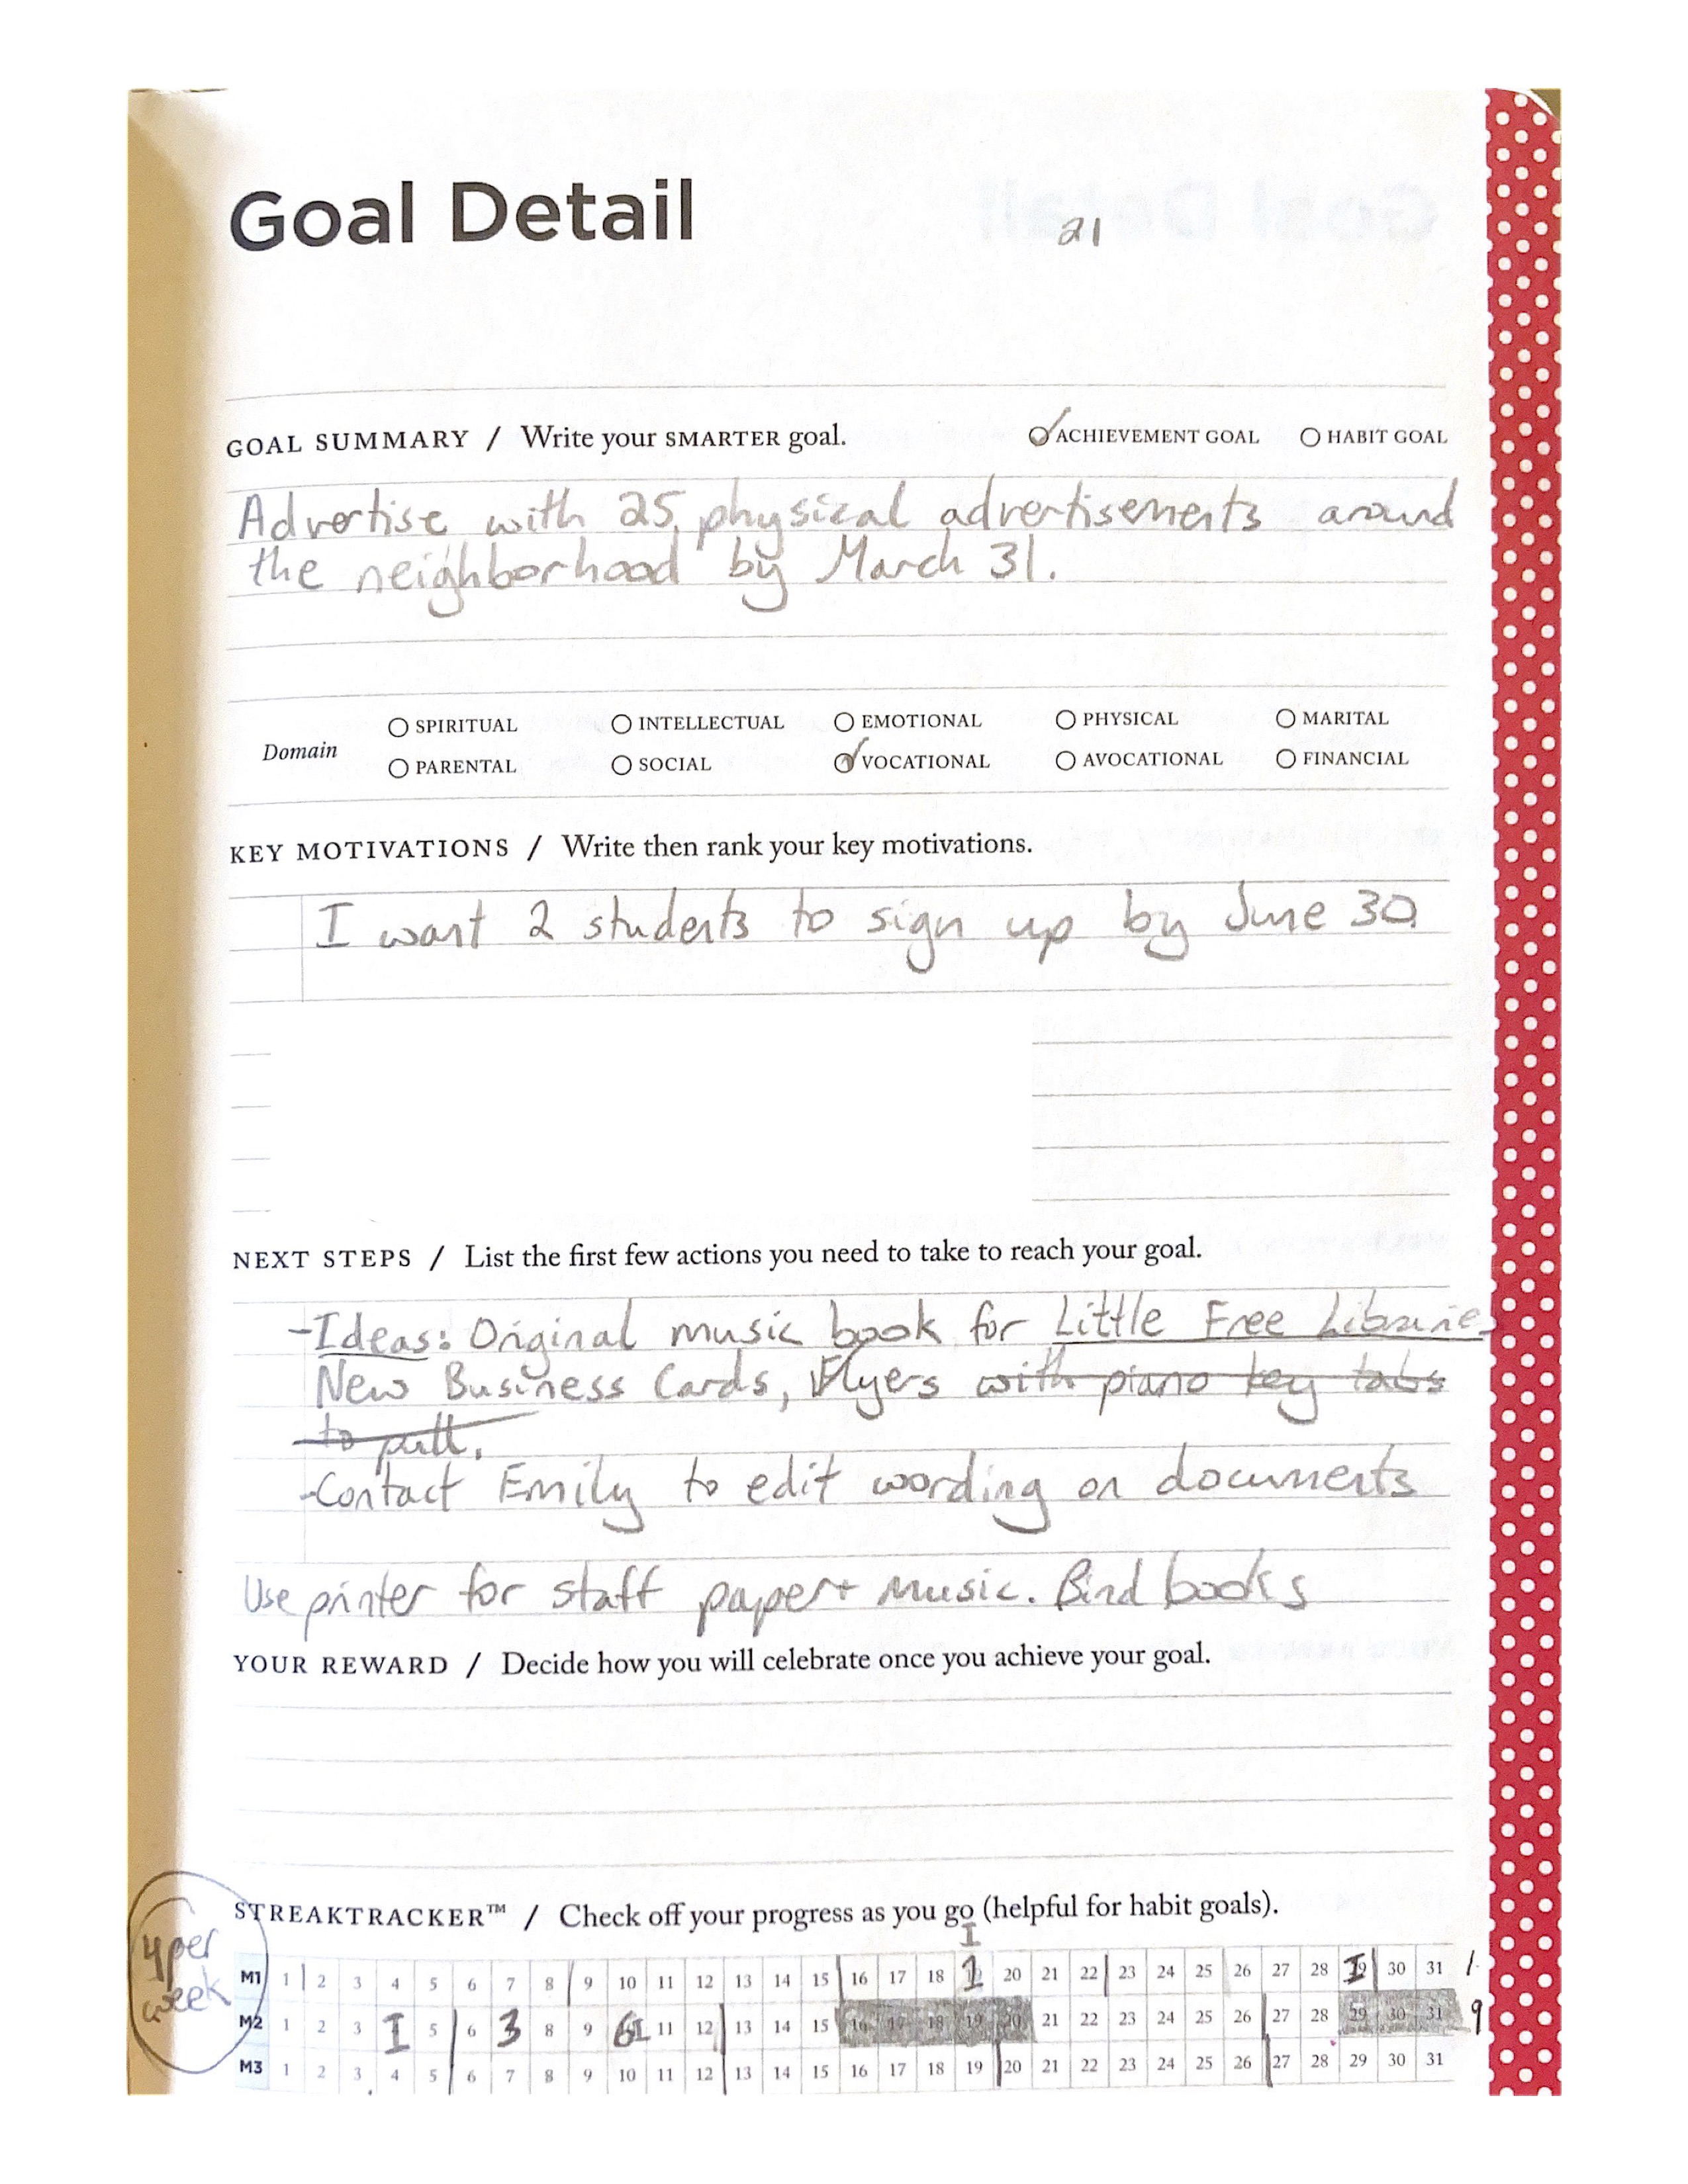 Goal Detail
21
GOAL SUMMARY / Write your SMARTER goal. ACHIEVEMENT GOAL HABIT GOAL
Advertise with 25 physical advertisements around
the neighborhood by March 31.
SPIRITUAL INTELLECTUAL EMOTIONAL PHYSICAL MARITAL
Domain
PARENTAL SOCIAL VOCATIONAL AVOCATIONAL FINANCIAL
KEY MOTIVATIONS / Write then rank your key motivations.
I want 2 students to sign up by June 30.
NEXT STEPS / List the first few actions you need to take to reach your goal.
-Ideas: Original music book for Little Free Libraries
New Business Cards, Flyers with piano key tabs
to pull.
-Contact Emily to edit wording on documents
Use printer for staff paper + music. Bind books
YOUR REWARD / Decide how you will celebrate once you achieve your goal.
STREAKTRACKER™ / Check off your progress as you go (helpful for habit goals).
4 per
week
I
M1 1 2 3 4 5 6 7 8 9 10 11 12 13 14 15 16 17 18 1 20 21 22 23 24 25 26 27 28 I 30 31 1
M2 1 2 3 I 5 6 3 8 9 6I 11 12 13 14 15 16 17 18 19 20 21 22 23 24 25 26 27 28 29 30 31 9
M3 1 2 3 4 5 6 7 8 9 10 11 12 13 14 15 16 17 18 19 20 21 22 23 24 25 26 27 28 29 30 31